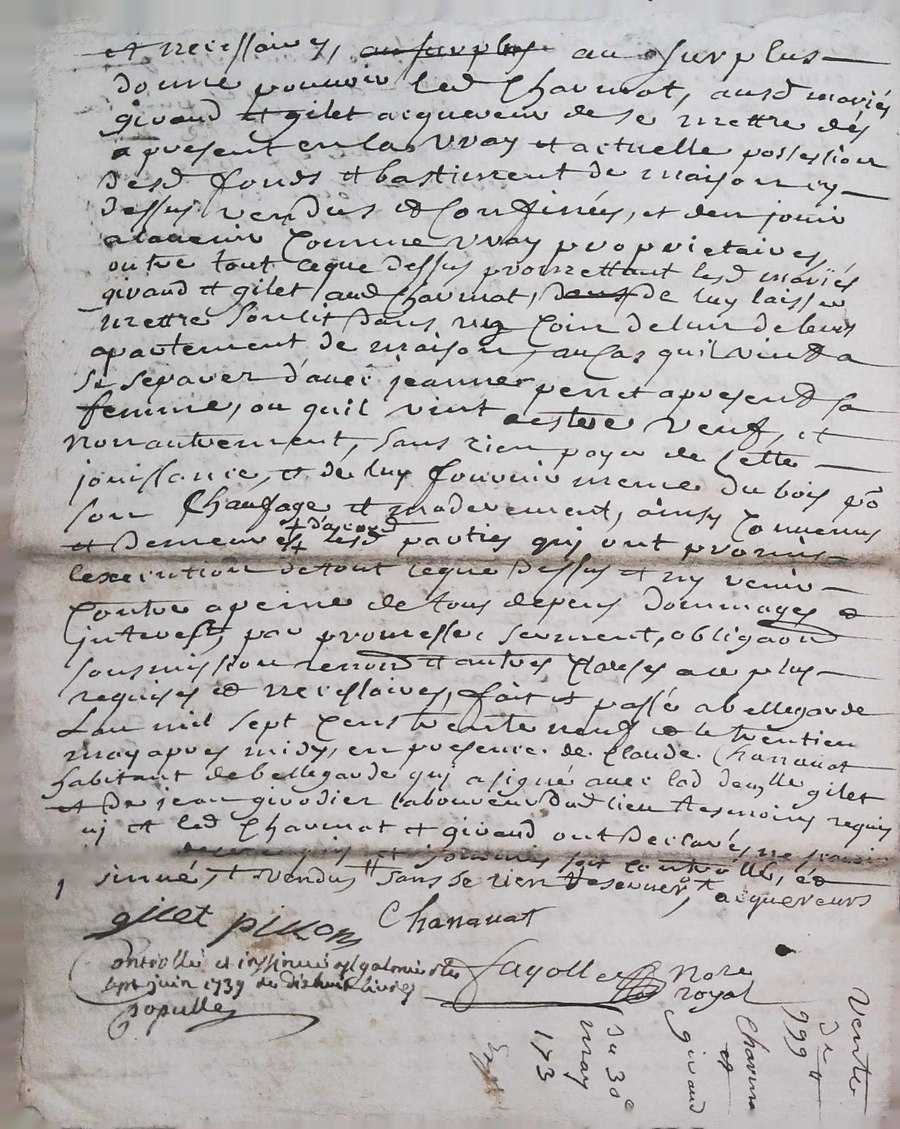 et necessaires, au surplus au surplus
donne pouvoir led Charmot, ausd mariés
giraud et gilet acquereur de se mettre dés
apresent en la vray et actuelle possession
desd fonds et bastiment de maison cy
dessus vendus et Confinés, et den jouir
alavenir Comme vray proprietaires,
outre tout ceque dessus promettant lesd mariés
giraud et gilet aud Charmot, de luy laisser
mettre sonlit dans un Coin delun deleurs
apartement de maison, aucas quil vint a
se separer d'avec jeanne perret apresent sa
femme, ou quil vint aestre veuf, et
non autrement, sans rien payer de Cette
jouissance, et de luy fournir meme du bois po
son Chaufage et moderement, ainsy Convenus
et Demeurés d'acord lesd parties quj ont promis
lexecution detout ceque Dessus et ny venir
Contre apeine de tous depens Dommages et
jnterest, par promesse serment, obligaon
sousmission renon et autres Clauses au plus
requises et necessaires, fait et passé abellegarde
Lan mil sept Cens trente neuf et le trentien
may apres midy, en presence de Claude Chananat
habitant debellegarde quj asigné avec lad gilet
et De jean girodier laboureur Dud lieu tesmoins requis
et led Charmot et giraud ont Declarés ne scavoir
soit Controllé, et
sinué, et vendus sans se rien reserver, acquereurs
gilet pillon Chananat
Controllé et insinué a st galmier le
sept juin 1739 dixhuit livres
populle
fayolle Nore
royal
Vente
De
999
Charmo
et
giraud
Du 30e
may
173